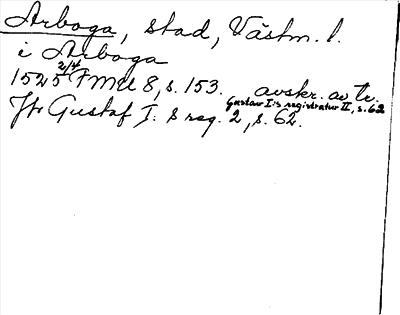 Arboga, stad, Västm. l.
i Arboga
1525 2/4 FMU 8, s. 153. avskr. av tr.
Gustav I:s registratur II, s. 62
Jfr Gustaf I:s reg. 2, s. 62.